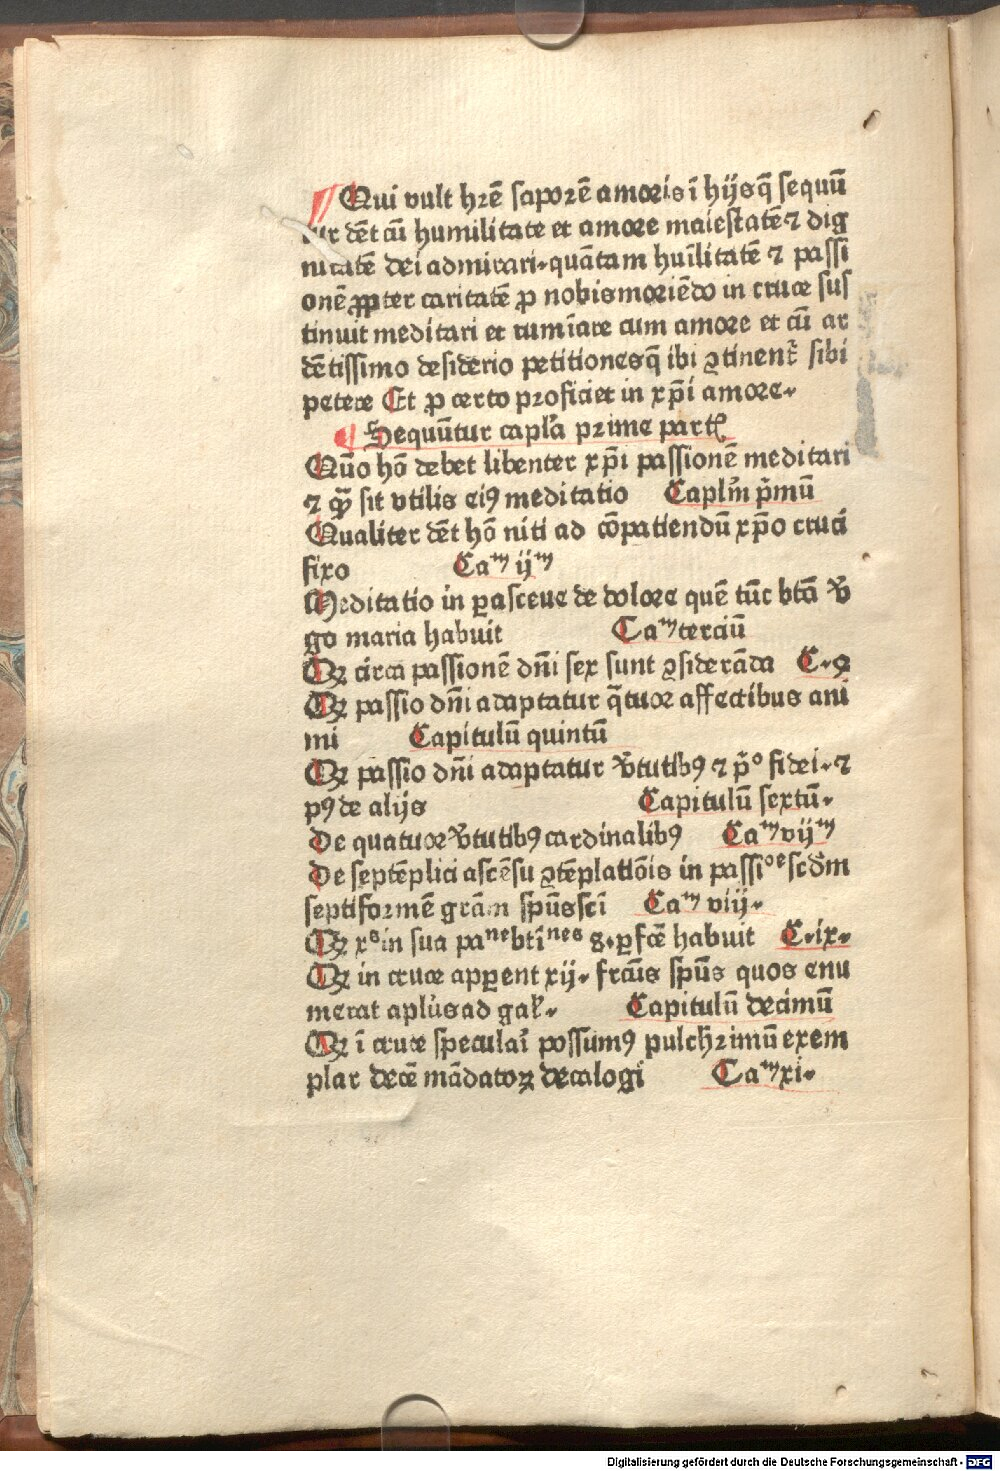 Qui vult hr̄e saporē amoris ī hijsq̄ sequū
tur dēt cū humilitate et amore maiestatē ⁊ dig
nitatē dei admirari·quātam hūilitatē ⁊ passi
onē ꝓpter caritatē ꝓ nobis moriēdo in cruce sus
tinuit meditari et rumīare cum amore et cū ar
dētissimo desiderio petitionesq̄ ibi ꝯtinent̄ sibi
petere Et ꝓ certo proficiet in xp̄i amore·
Sequūtur capl̄a prime partꝭ
Quō hō debet libenter xp̄i passionē meditari
⁊ qꝫ̄ sit vtilis eiꝰ meditatio Capl̄m p̄mū
Qualiter dēt hō niti ad cōpatiendū xp̄o cruci
fixo Caᵐ ijᵐ
Meditatio in ꝑasceue de dolore quē tūc btā v̄
go maria habuit Caᵐ terciū
Qꝫ circa passionē dn̄i sex sunt ꝯsiderāda C·4
Qꝫ passio dn̄i adaptatur q̄tuor affectibus ani
mi Capitulū quintū
Qꝫ passio dn̄i adaptatur v̄tutibꝰ ⁊ p̄º fidei·⁊
pꝰ de alijs Capitulū sextū·
De quatuor v̄tutibꝰ cardinalibꝰ Caᵐ vijᵐ
De septēplici ascēsu ꝯtēplatiōis in passiºᵉ scd̄m
septiformē grām sp̄us sci Caᵐ viij·
Qꝫ xˢ in sua paⁿᵉ btīⁿᵉˢ 8·ꝑfcē habuit C·ix·
Qꝫ in cruce apꝑent xij· frcūs sp̄us quos enu
merat apl̄us ad gal̄· Capitulū decimū
Qꝫ ī cruce speculari possumꝰ pulchrimū exem
plar decē mādatoꝝ decalogi Caᵐ xi·
Digitalisierung gefördert durch die Deutsche Forschungsgemeinschaft - DFG